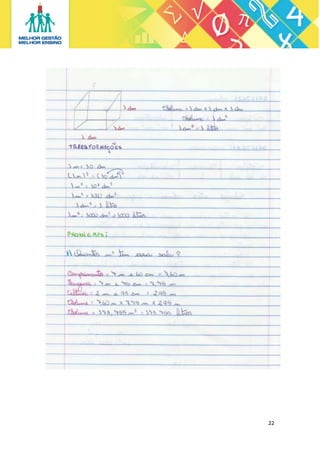 MELHOR GESTÃO
MELHOR ENSINO
1 dm
Volume = 1 dm x 1 dm x 1 dm
Volume = 1 dm³
1 dm
1 dm³ = 1 litro
1 dm
TRANSFORMAÇÕES
1 m = 10 dm
(1m)³ = (10 dm)³
1 m³ = 10³ dm³
1 m³ = 1000 dm³
1 dm³ = 1 litro
1m³ = 1000 dm³ = 1000 litros
PROBLEMAS:
1) Quantos m³ tem essa sala?
Comprimento = 7 m e 60 cm = 7,60 m
Largura = 7 m e 75 cm = 7,75 m
Altura = 2 m e 95 cm = 2,95 m
Volume = 7,60 m x 7,75 m x 2,95 m
22